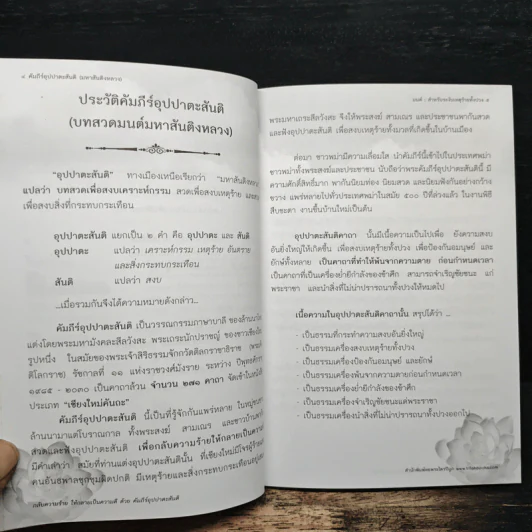 ๔ คัมภีร์อุปปาตะสันติ (มหาสันติงหลวง)
ประวัติคัมภีร์อุปปาตะสันติ
(บทสวดมนต์มหาสันติงหลวง)
"อุปปาตะสันติ" ทางเมืองเหนือเรียกว่า "มหาสันติงหลวง"
แปลว่า บทสวดเพื่อสงบเคราะห์กรรม สวดเพื่อสงบเหตุร้าย และสวด
เพื่อสงบสิ่งที่กระทบกระเทือน
อุปปาตะสันติ แยกเป็น ๒ คำ คือ อุปปาตะ และ สันติ
อุปปาตะ แปลว่า เคราะห์กรรม เหตุร้าย อันตราย
และสิ่งกระทบกระเทือน
สันติ แปลว่า สงบ
...เมื่อรวมกันจึงได้ความหมายดังกล่าว...
คัมภีร์อุปปาตะสันติ เป็นวรรณกรรมภาษาบาลี ของล้านนาไทย
แต่งโดยพระมหามังคละสีลวังสะ พระเถระนักปราชญ์ ของชาวเชียงใหม่
รูปหนึ่ง ในสมัยของพระเจ้าสิริธรรมจักกวัตติลกราชาธิราช
ติโลกราช) รัชกาลที่ ๑๑ แห่งราชวงศ์มังราย ระหว่าง ปีพุทธศักราช
๑๙๘๕ - ๒๐๓๐ เป็นคาถาล้วน จำนวน ๒๗๑ คาถา จัดเข้าในหนังสือ
ประเภท "เชียงใหม่คันถะ"
คัมภีร์อุปปาตะสันติ นี้เป็นที่รู้จักกันแพร่หลาย ในหมู่
ล้านนามาแต่โบราณกาล ทั้งพระสงฆ์ สามเณร และชาวบ้าน
สวดและฟังอุปปาตะสันติ เพื่อกลับความร้ายให้กลายเป็นความดี
มีคำเล่าว่า สมัยที่ท่านแต่งอุปปาตะสันตินั้น ที่เชียงใหม่มีโจรผู้ร้าย
คนอันธพาลชุกชุมผิดปกติ มีเหตุร้ายและสิ่งกระทบกระเทือนอยู่เสมอ
กลับความร้าย ให้กลายเป็นความดี ด้วย คัมภีร์อุปปาตะสันติ
พระมหาเถระสีลวังสะ จึงให้พระสงฆ์ สามเณร และประชาชนพากันสวด
และฟังอุปปาตะสันติ เพื่อสงบเหตุร้ายทั้งมวลที่เกิดขึ้นในบ้านเมือง
ต่อมา ชาวพม่ามีความเลื่อมใส นำคัมภีร์นี้เข้าไปในประเทศพม่า
ชาวพม่าทั้งพระสงฆ์และประชาชน นับถือว่าพระคัมภีร์อุปปาตะสันตินี้ มี
ความศักดิ์สิทธิ์มาก พากันนิยมท่อง นิยมสวด และนิยมฟังกันอย่างกว้าง
ขวาง แพร่หลายไปทั่วประเทศพม่าในสมัย ๕๐๐ ปีที่ล่วงแล้ว ในงานพิธี
สืบชะตา งานขึ้นบ้านใหม่เป็นต้น
อุปปาตะสันติคาถา นั้นมีความเป็นไปเพื่อ ยังความสงบ
อันยิ่งใหญ่ให้เกิดขึ้น เพื่อสงบเหตุร้ายทั้งปวง เพื่อป้องกันอมนุษย์ และ
ยักษ์ทั้งหลาย เป็นคาถาที่ทำให้พ้นจากความตาย ก่อนกำหนดเวลา
เป็นคาถาที่เป็นเครื่องย่ำยีกำลังของข้าศึก สามารถจำเริญชัยชนะ แก่
พระราชา และนำสิ่งที่ไม่น่าปรารถนาทั้งปวงให้หมดไป
เนื้อความในอุปปาตะสันติคาถานั้น สรุปได้ว่า ..
- เป็นธรรมที่กระทำความสงบอันยิ่งใหญ่
- เป็นธรรมเครื่องสงบเหตุร้ายทั้งปวง
- เป็นธรรมเครื่องป้องกันอมนุษย์ และยักษ์
- เป็นธรรมเครื่องพ้นจากความตายก่อนกำหนดเวลา
- เป็นธรรมเครื่องย่ำยีกำลังของข้าศึก
- เป็นธรรมเครื่องจำเริญชัยชนะแด่พระราชา
- เป็นธรรมเครื่องนำสิ่งที่ไม่น่าปรารถนาทั้งปวงออกไป